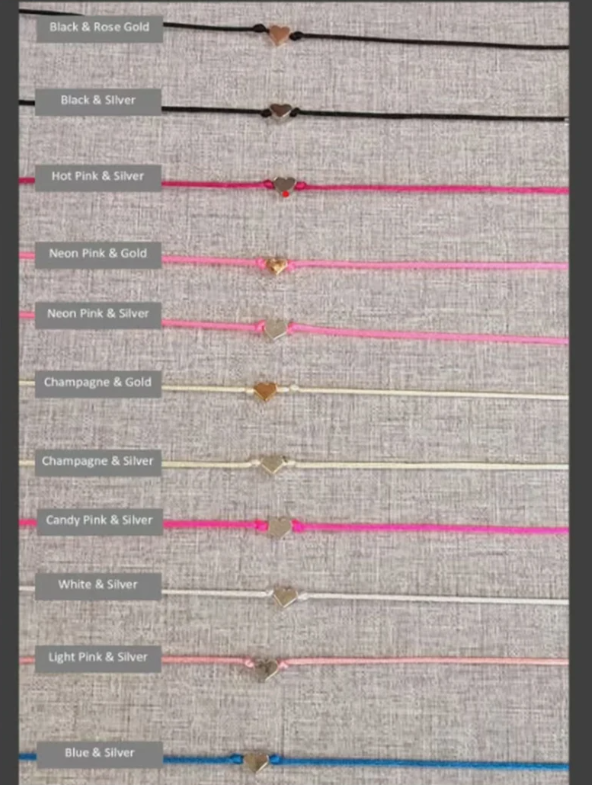 Black & Rose Gold
Black & Silver
Hot Pink & Silver
Neon Pink & Gold
Neon Pink & Silver
Champagne & Gold
Champagne & Silver
Candy Pink & Silver
White & Silver
Light Pink & Silver
Blue & Silver